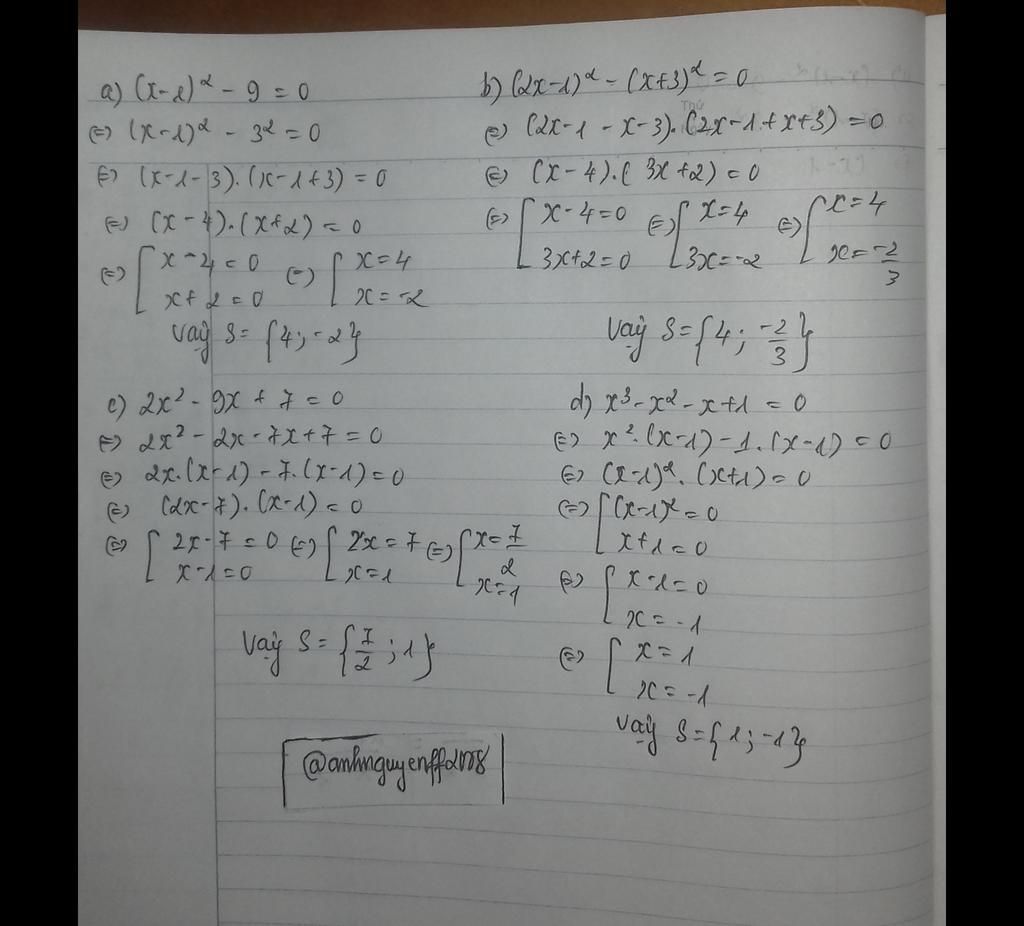 a) (x-1)² - 9 = 0
⇔ (x-1)² - 3² = 0
⇔ (x-1-3).(x-1+3) = 0
⇔ (x-4).(x+2) = 0
⇔ [ x-4=0 ⇔ [ x=4
x+2=0 x=-2
Vậy S= {4;-2}
b) (2x-1)² - (x+3)² = 0
⇔ (2x-1-x-3).(2x-1+x+3) = 0
⇔ (x-4).(3x+2) = 0
⇔ [ x-4=0 ⇔ [ x=4 ⇔ [ x=4
3x+2=0 3x=-2 x=-2/3
Vậy S= {4; -2/3}
c) 2x² - 9x + 7 = 0
⇔ 2x² - 2x - 7x + 7 = 0
⇔ 2x.(x-1) - 7.(x-1) = 0
⇔ (2x-7).(x-1) = 0
⇔ [ 2x-7=0 ⇔ [ 2x=7 ⇔ [ x=7/2
x-1=0 x=1 x=1
Vậy S= {7/2; 1}
d) x³ - x² - x + 1 = 0
⇔ x².(x-1) - 1.(x-1) = 0
⇔ (x-1)².(x+1) = 0
⇔ [ (x-1)²=0
x+1=0
⇔ [ x-1=0
x=-1
⇔ [ x=1
x=-1
Vậy S={1;-1}
@anhnguyenff2008